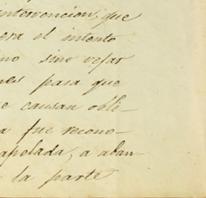 intervencion, que
era el intento
no sino vejar
les para que
e causan obli-
a fue recono-
apelada, a aban-
la parte